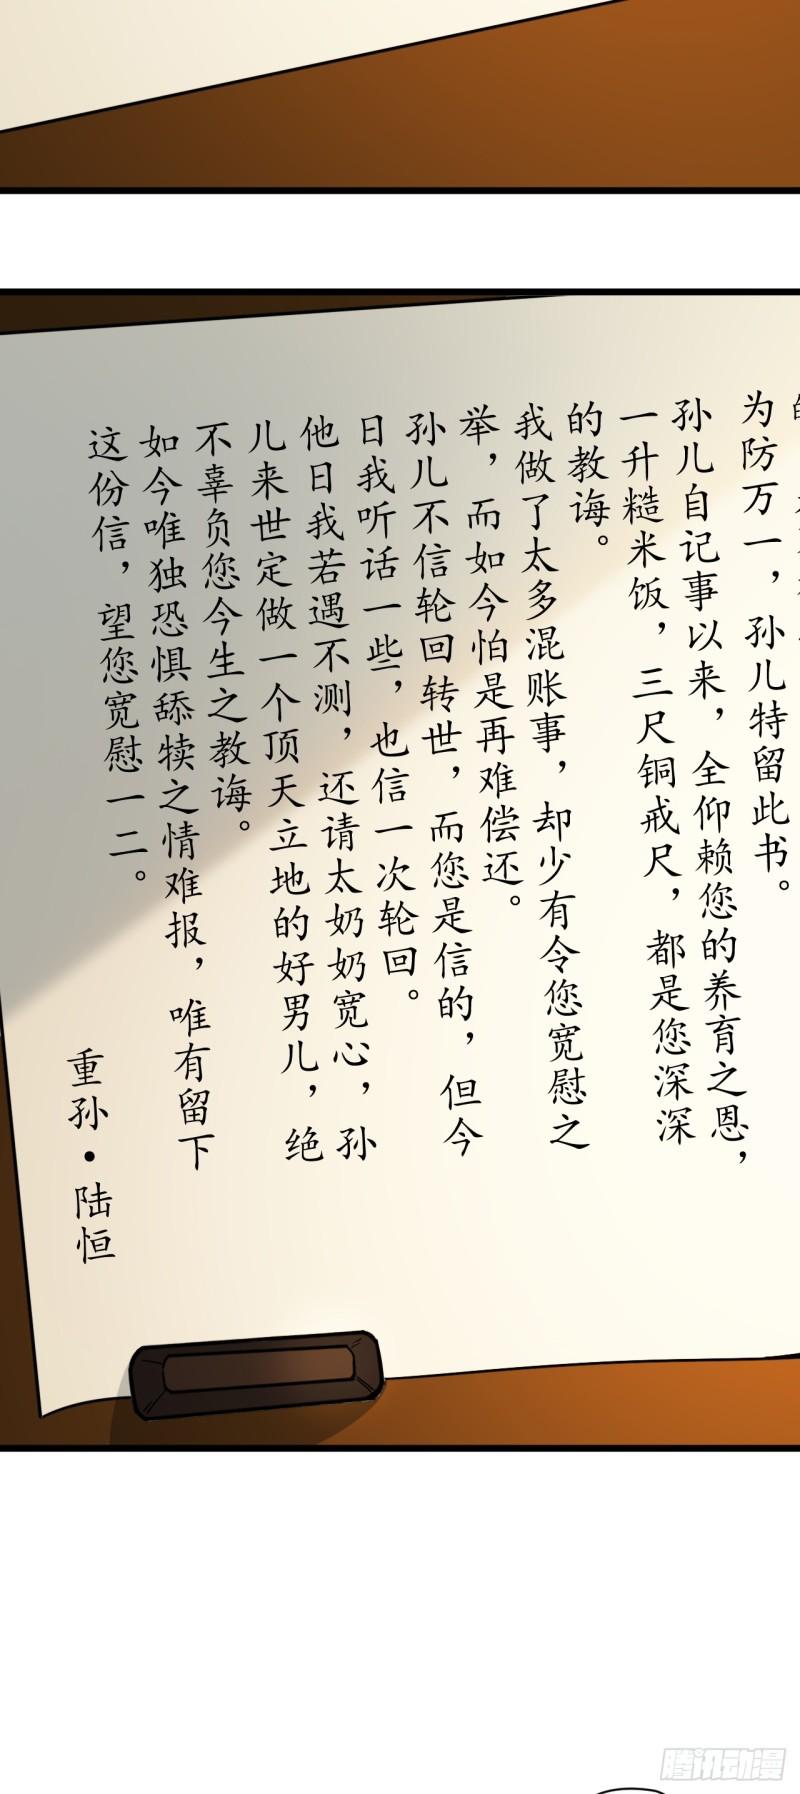 为防万一，孙儿特留此书。
孙儿自记事以来，全仰赖您的养育之恩，
一升糙米饭，三尺铜戒尺，都是您深深
的教诲。
我做了太多混账事，却少有令您宽慰之
举，而如今怕是再难偿还。
孙儿不信轮回转世，而您是信的，但今
日我听话一些，也信一次轮回。
他日我若遇不测，还请太奶奶宽心，孙
儿来世定做一个顶天立地的好男儿，绝
不辜负您今生之教诲。
如今唯独恐惧舔犊之情难报，唯有留下
这份信，望您宽慰一二。
重孙·陆恒
腾讯动漫